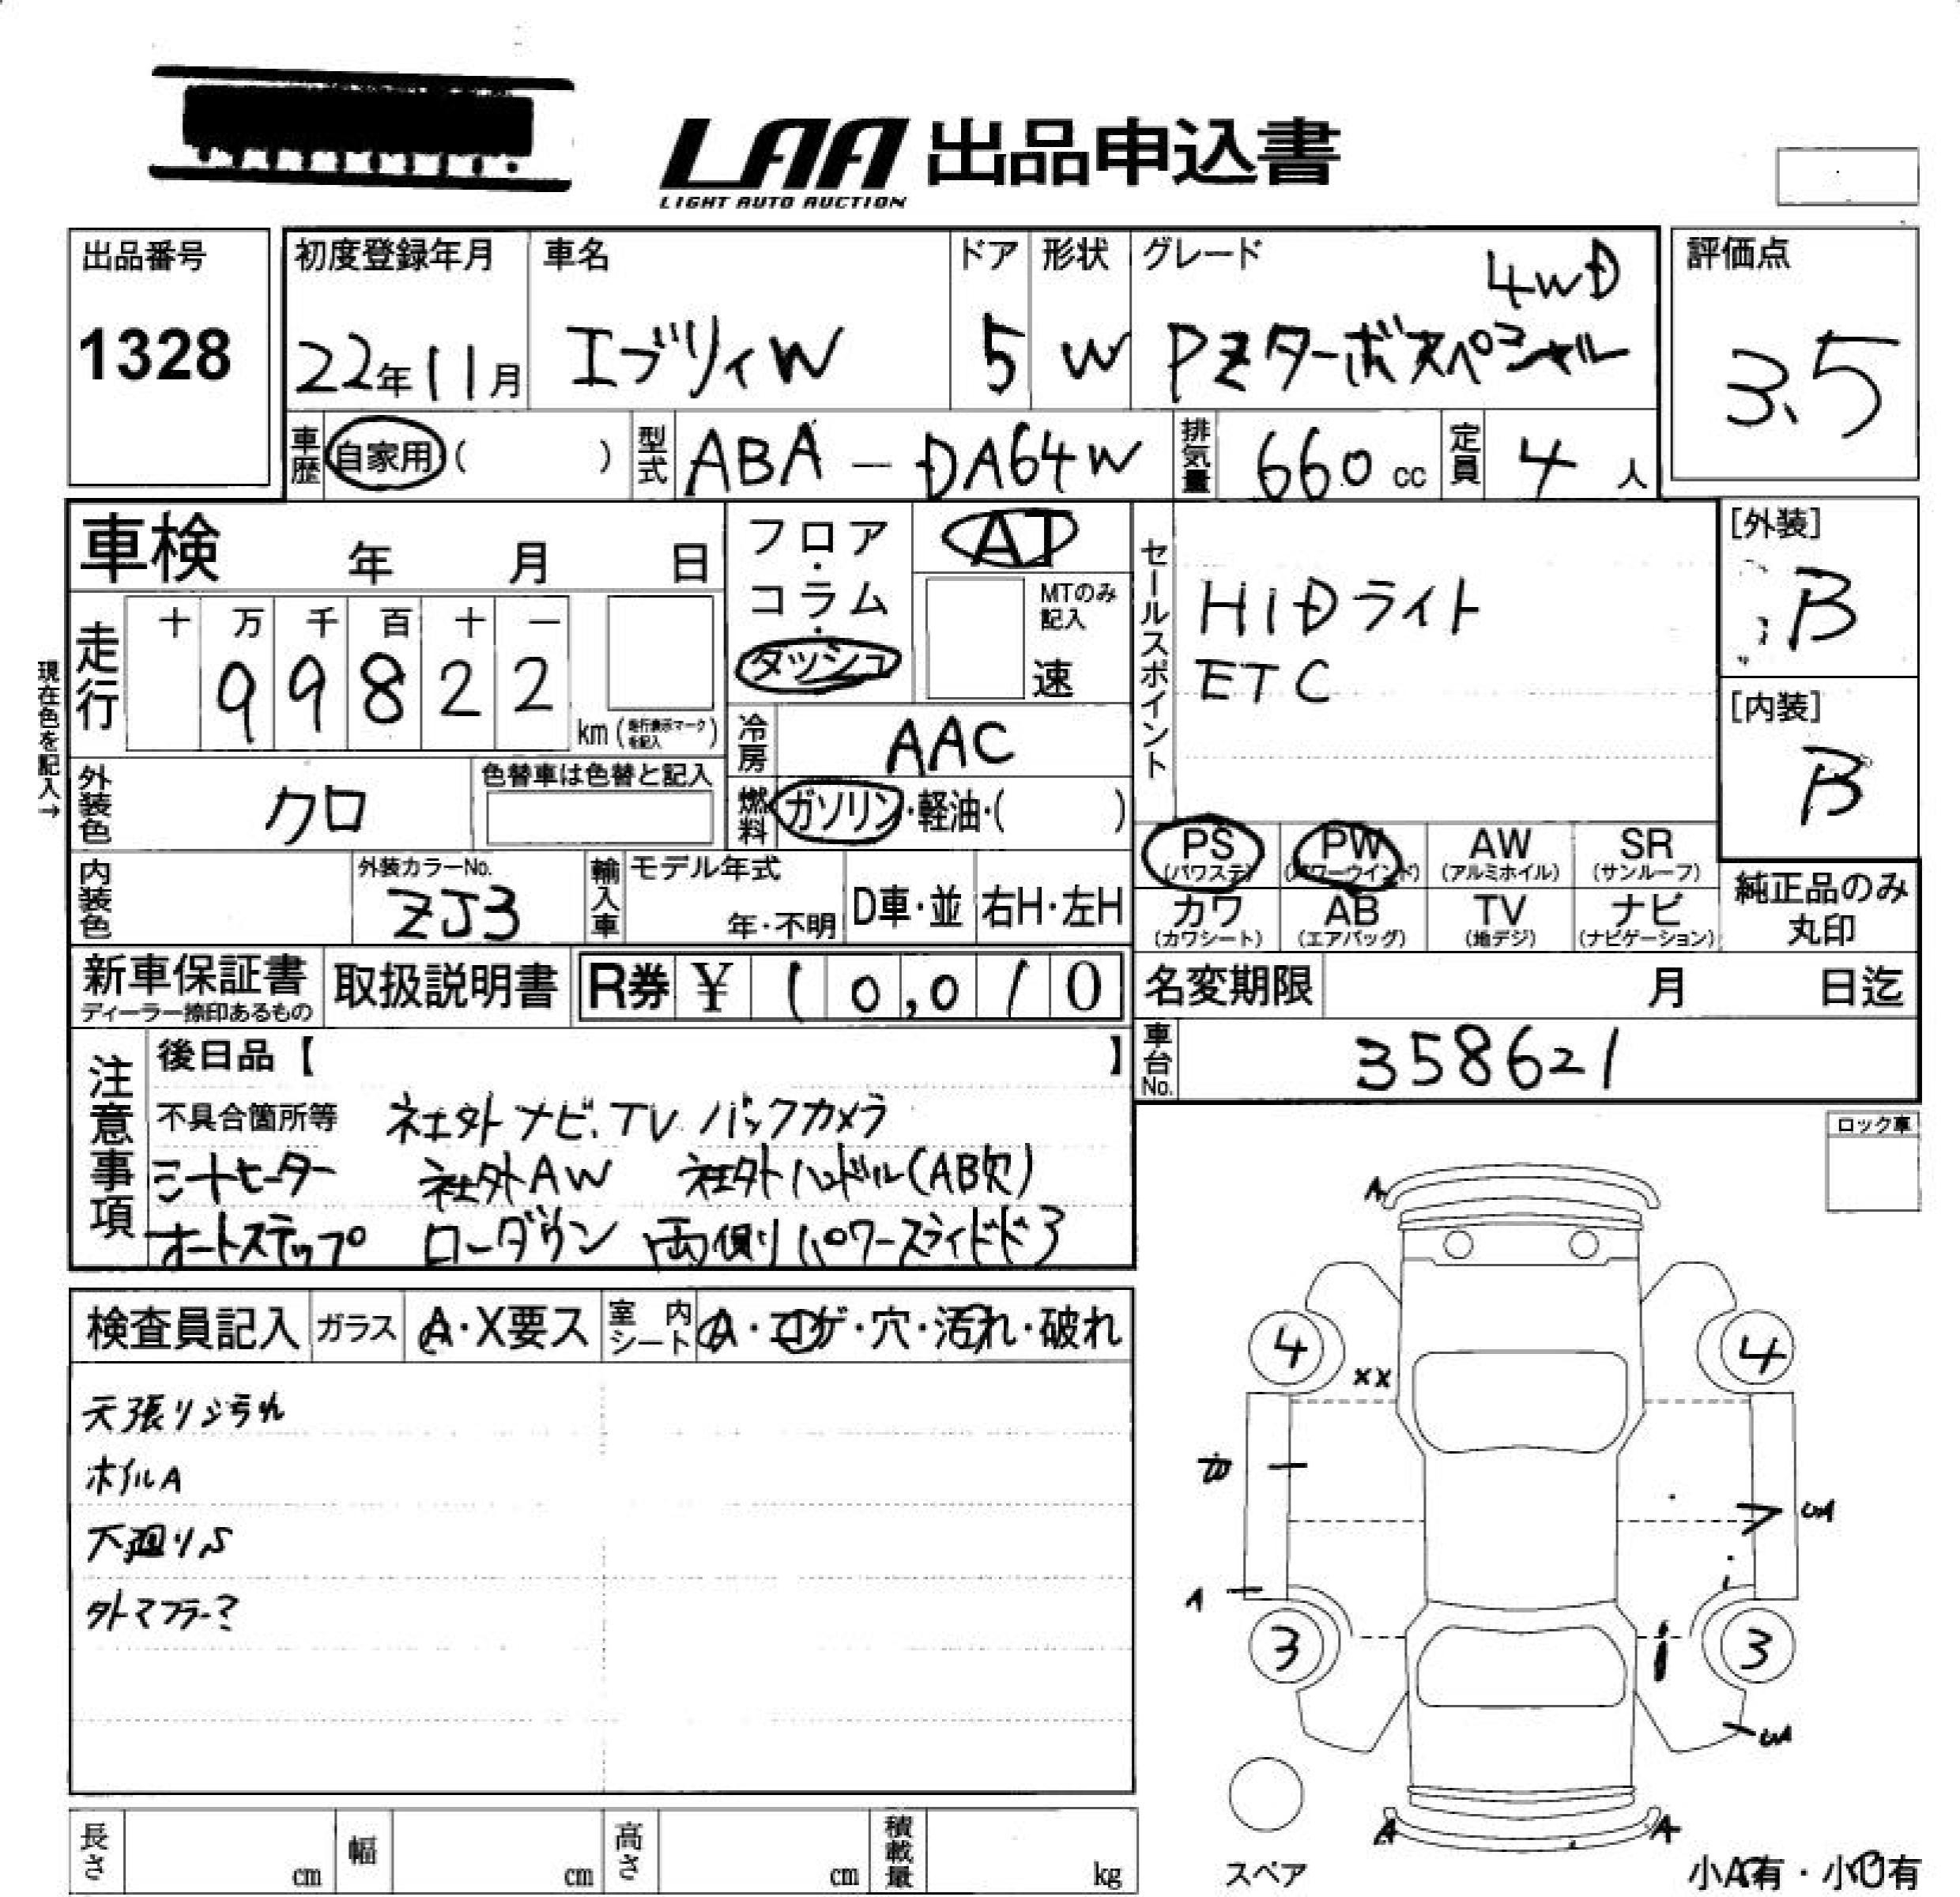 LAA 出品申込書
LIGHT AUTO AUCTION
出品番号
1328
初度登録年月
22年11月
車名
エブリィW
ドア
5
形状
W
グレード
4WD
PZターボスペシャル
評価点
3.5
車歴 自家用 ( )
型式 ABA-DA64W
排気量 660 cc
定員 4 人
車検 年 月 日
フロア・コラム・ダッシュ
AT
MTのみ記入
速
セールスポイント
HIDライト
ETC
[外装]
B
[内装]
B
現在色を記入→
走行 十 万 千 百 十 一
99822
km (走行表示マークを記入)
冷房 AAC
外装色 クロ
色替車は色替と記入
燃料 ガソリン・軽油・( )
内装色
外装カラーNo.
ZJ3
輸入車 モデル年式
年・不明
D車・並 右H・左H
PS (パワステ) PW (パワーウインド) AW (アルミホイル) SR (サンルーフ)
カワ (カワシート) AB (エアバッグ) TV (地デジ) ナビ (ナビゲーション)
純正品のみ
丸印
新車保証書
ディーラー捺印あるもの
取扱説明書
R券 ¥ 10,010
名変期限 月 日迄
車台No. 358621
注意事項
後日品【 】
不具合箇所等 社外ナビ.TV バックカメラ
シートヒーター 社外AW 社外ハンドル(AB欠)
オートステップ ローダウン 両側パワースライドドア
ロック車
検査員記入 ガラス A・X要ス 室内シート A・コゲ・穴・汚れ・破れ
天張りシミ汚れ
ホイルA
下廻りS
外マフラー?
A
4 4
XX
A
3 3
A A
長さ cm 幅 cm 高さ cm 積載量 kg
スペア
小A有・小U有